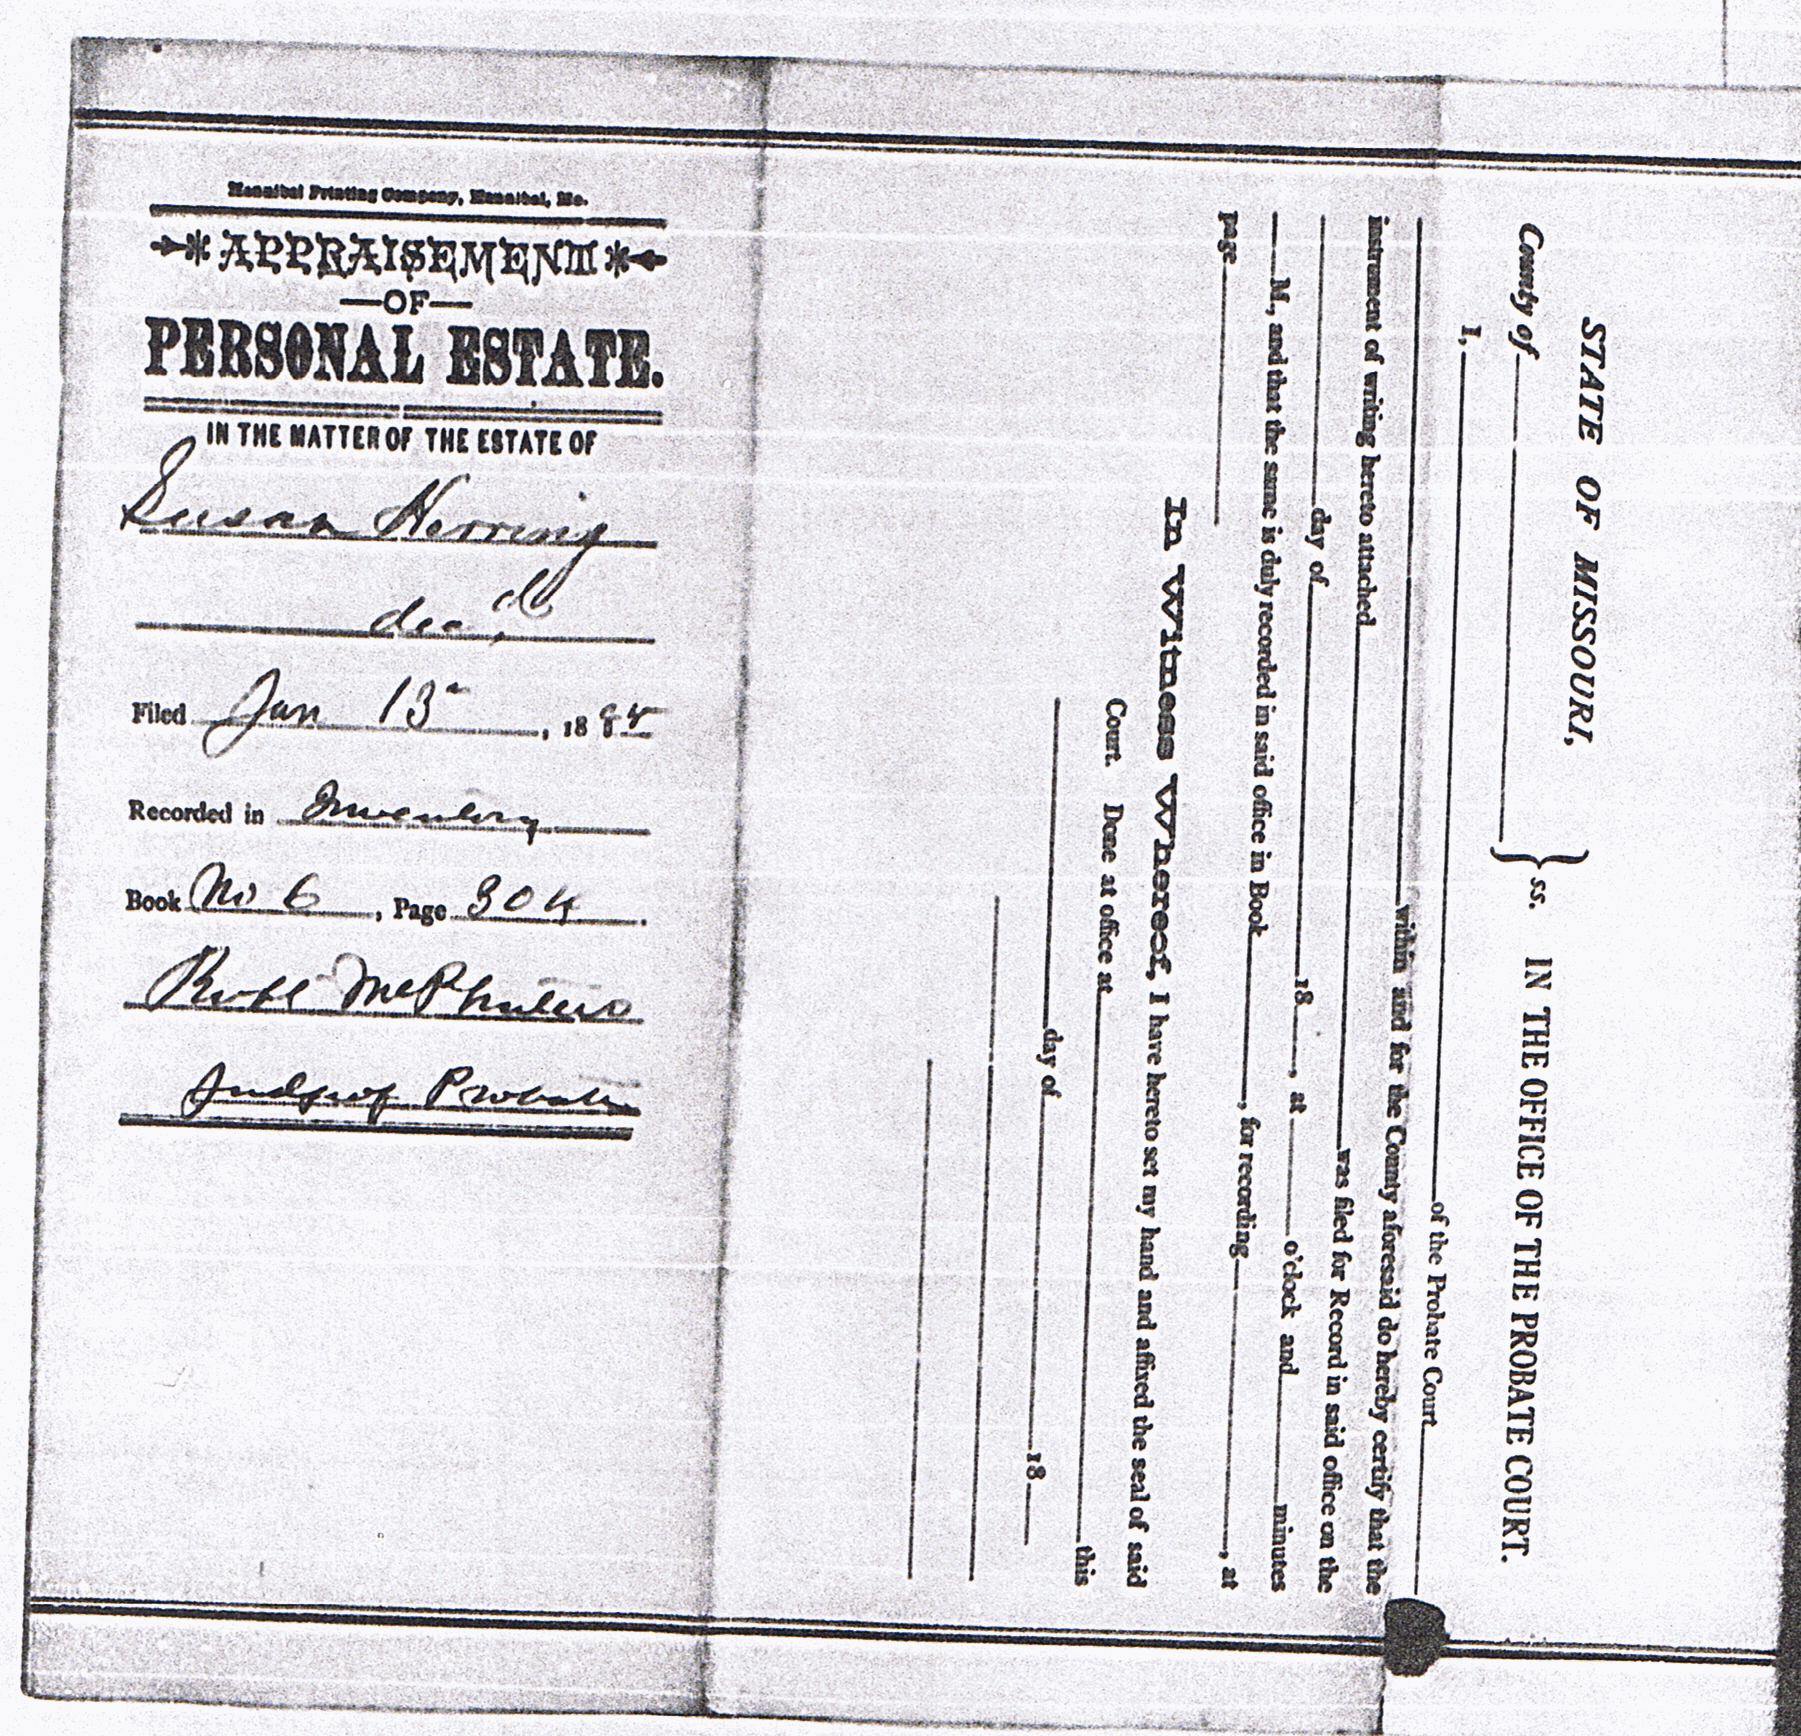 Hannibal Printing Company, Hannibal, Mo.
APPRAISEMENT
—OF—
PERSONAL ESTATE.
IN THE MATTER OF THE ESTATE OF
Susan Herring
dec'd
Filed Jan 13, 18
Recorded in Inventory
Book No 6, Page 304
Robt
Judge of Probate
STATE OF MISSOURI,
County of } ss. IN THE OFFICE OF THE PROBATE COURT.
I, of the Probate Court
within and for the County aforesaid do hereby certify that the
instrument of writing hereto attached was filed for Record in said office on the
day of 18 , at o'clock and minutes
M., and that the same is duly recorded in said office in Book , for recording , at
page
In Witness Whereof, I have hereto set my hand and affixed the seal of said
Court. Done at office at this
day of 18